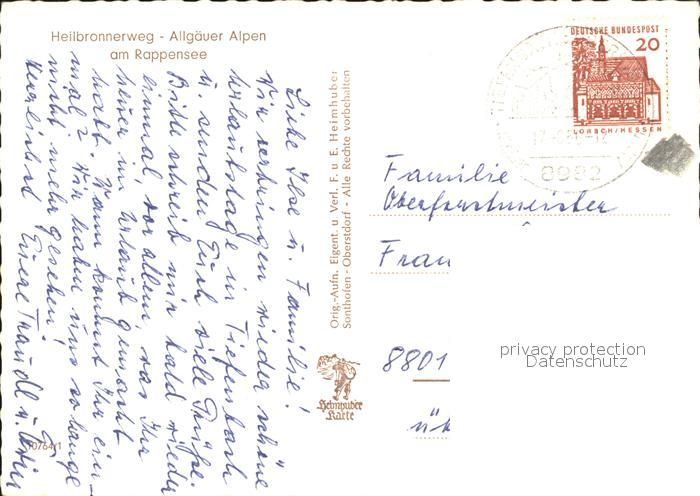 Heilbronnerweg - Allgäuer Alpen
am Rappensee
Liebe Ilse u. Familie!
Wir verbringen wieder schöne
Urlaubstage in Tiefenbach
u. senden Euch viele Grüße.
Bitte schreib mir bald wieder
einmal, vor allem, was Ihr
heuer im Urlaub gemacht
habt. Wann kommt Ihr ein-
mal? Wir haben uns so lange
nicht mehr gesehen!
Herzlichst Eure Traudl u.
10764/1
Orig.-Aufn. Eigent. u. Verl. F. u. E. Heimhuber
Sonthofen - Oberstdorf - Alle Rechte vorbehalten
Heimhuber
Karte
DEUTSCHE BUNDESPOST
20
LORSCH/HESSEN
8982
Familie
Oberforstmeister
Fran
8801
privacy protection
Datenschutz